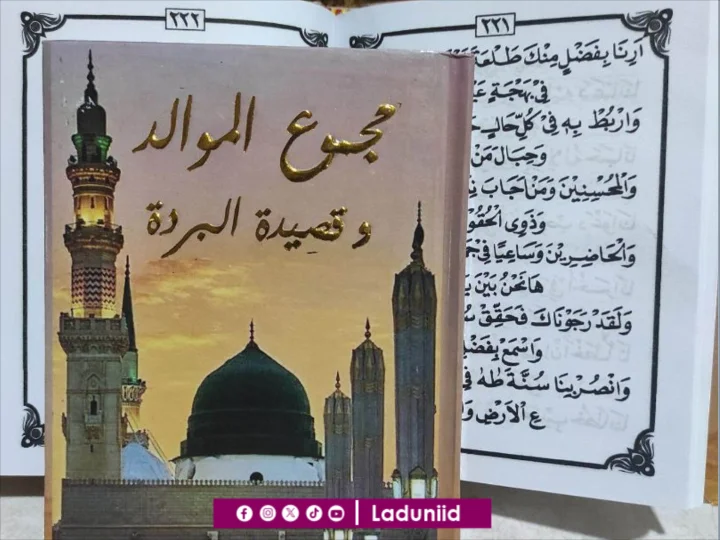 مجموع الموالد
و قصيدة البردة
٢٢٢
٢٢١
اَرِنَا بِفَضْلٍ مِنْكَ طَلْعَةَ
فِيْ بَهْجَةٍ
وَارْبُطْ بِهِ فِيْ كُلِّ حَالٍ
وَحِبَالَ مَنْ
وَالْمُحْسِنِيْنَ وَمَنْ اَجَابَ
وَذَوِى الْحُقُوْ
وَالْحَاضِرِيْنَ وَسَاعِيًا فِيْ
هَانَحْنُ بَيْنَ
وَلَقَدْ رَجَوْنَاكَ فَحَقِّقْ
وَاسْمَعْ بِفَضْلِ
وَانْصُرْ بِنَا سُنَّةَ طٰهٰ فِيْ
عِ الْاَرْضِ
Laduniid